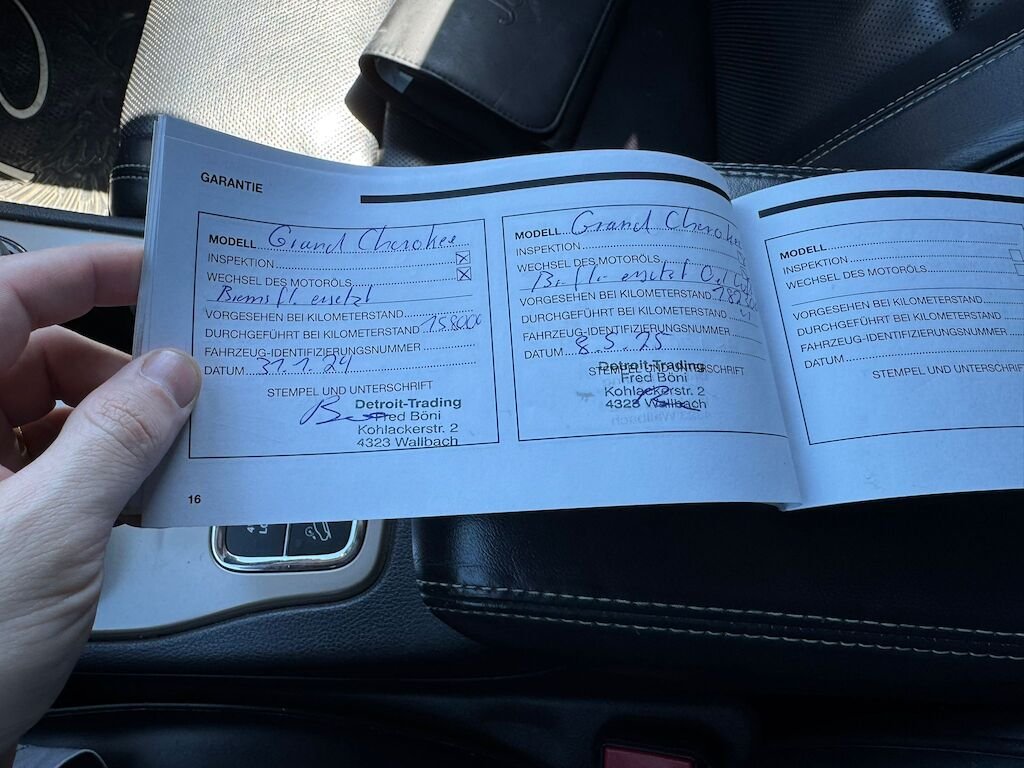 GARANTIE
MODELL Grand Cherokee
INSPEKTION
WECHSEL DES MOTORÖLS
Bremsfl. ersetzt
VORGESEHEN BEI KILOMETERSTAND
DURCHGEFÜHRT BEI KILOMETERSTAND 158000
FAHRZEUG-IDENTIFIZIERUNGSNUMMER
DATUM 31.1.24
STEMPEL UND UNTERSCHRIFT
Detroit-Trading
Fred Böni
Kohlackerstr. 2
4323 Wallbach
16
MODELL Grand Cherokee
INSPEKTION
WECHSEL DES MOTORÖLS
Br. fl. ersetzt
VORGESEHEN BEI KILOMETERSTAND
DURCHGEFÜHRT BEI KILOMETERSTAND
FAHRZEUG-IDENTIFIZIERUNGSNUMMER
DATUM 8.5.25
STEMPEL UND UNTERSCHRIFT
Detroit-Trading
Fred Böni
Kohlackerstr. 2
4323 Wallbach
MODELL
INSPEKTION
WECHSEL DES MOTORÖLS
VORGESEHEN BEI KILOMETERSTAND
DURCHGEFÜHRT BEI KILOMETERSTAND
FAHRZEUG-IDENTIFIZIERUNGSNUMMER
DATUM
STEMPEL UND UNTERSCHRIFT